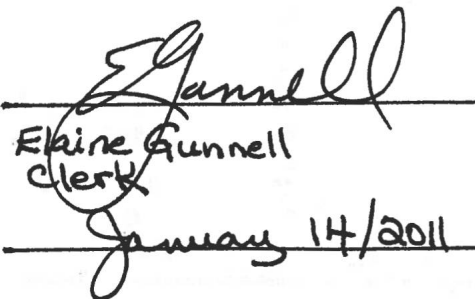 EGunnell
Elaine Gunnell
Clerk
January 14/2011